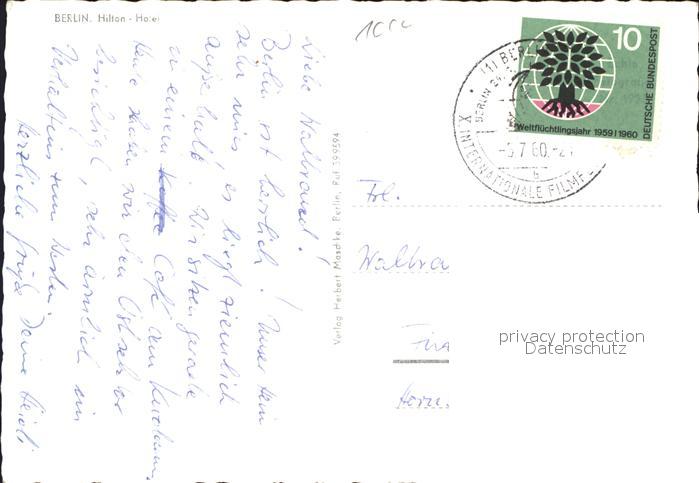 BERLIN. Hilton - Hotel
Liebe Waltraud!
Berlin ist herrlich! Unser Heim
sehr nies, es liegt ziemlich
außerhalb. Wir sitzen gerade
in einem Café am Kurdamm.
Heute haben wir den Ostsektor
besichtigt, sehr ärmlich im
Verhältnis zum Westen.
Herzliche Grüße Deine Heidi
Verlag Herbert Maschke, Berlin, Ruf 399594
10
DEUTSCHE BUNDESPOST
Weltflüchtlingsjahr 1959|1960
(1) BERLIN
-5.7.60.-21
b
X INTERNATIONALE FILMF
Frl.
Waltra
Fira
Herm.
privacy protection
Datenschutz